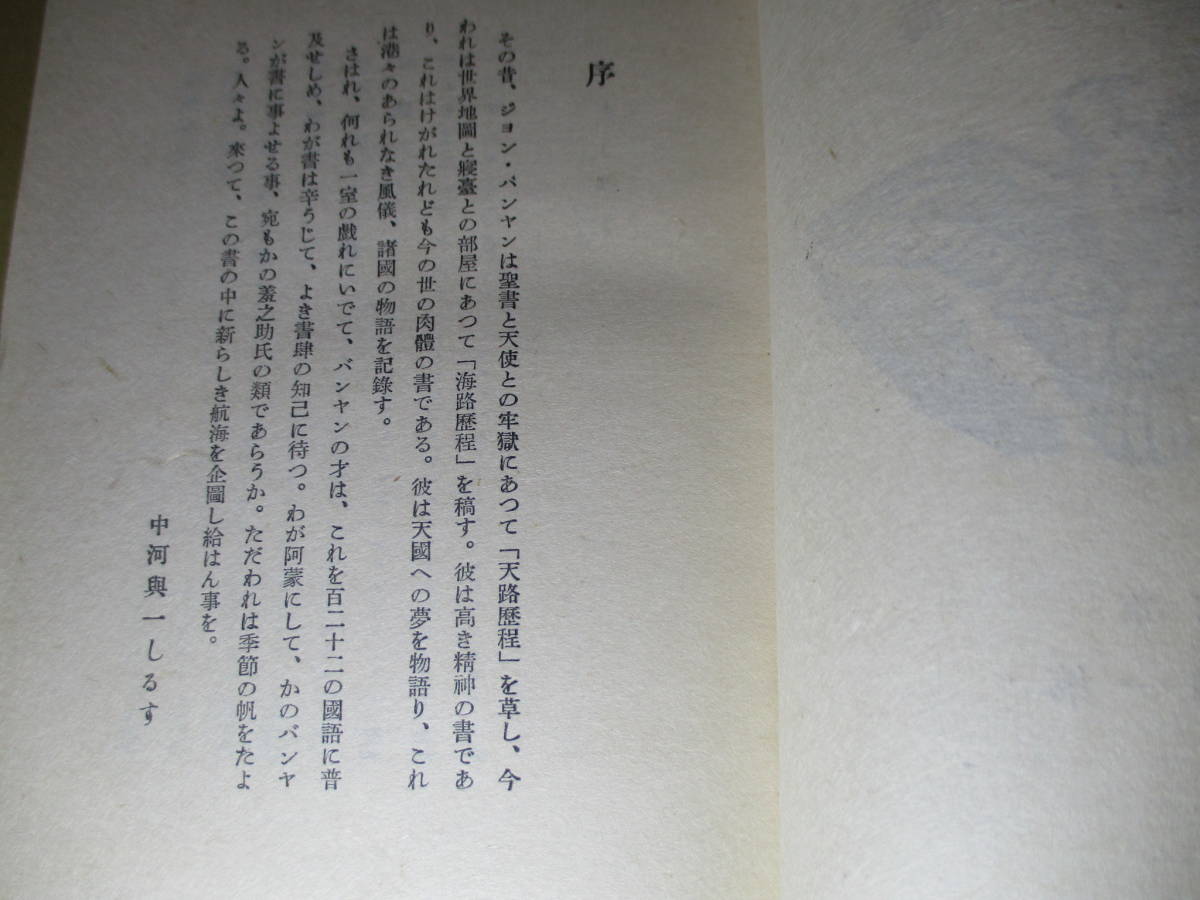 序
その昔、ジョン・バンヤンは聖書と天使との牢獄にあつて「天路歴程」を草し、今
われは世界地圖と寢臺との部屋にあつて「海路歴程」を稿す。彼は高き精神の書であ
り、これはけがれたれども今の世の肉體の書である。彼は天國への夢を物語り、これ
は港々のあられなき風儀、諸國の物語を記錄す。
さはれ、何れも一室の戯れにいでて、バンヤンの才は、これを百二十二の國語に普
及せしめ、わが書は辛うじて、よき書肆の知己に待つ。わが阿蒙にして、かのバンヤ
ンが書に事よせる事、宛もかの羞之助氏の類であらうか。ただわれは季節の帆をたよ
る。人々よ。來つて、この書の中に新らしき航海を企圖し給はん事を。
中河與一しるす